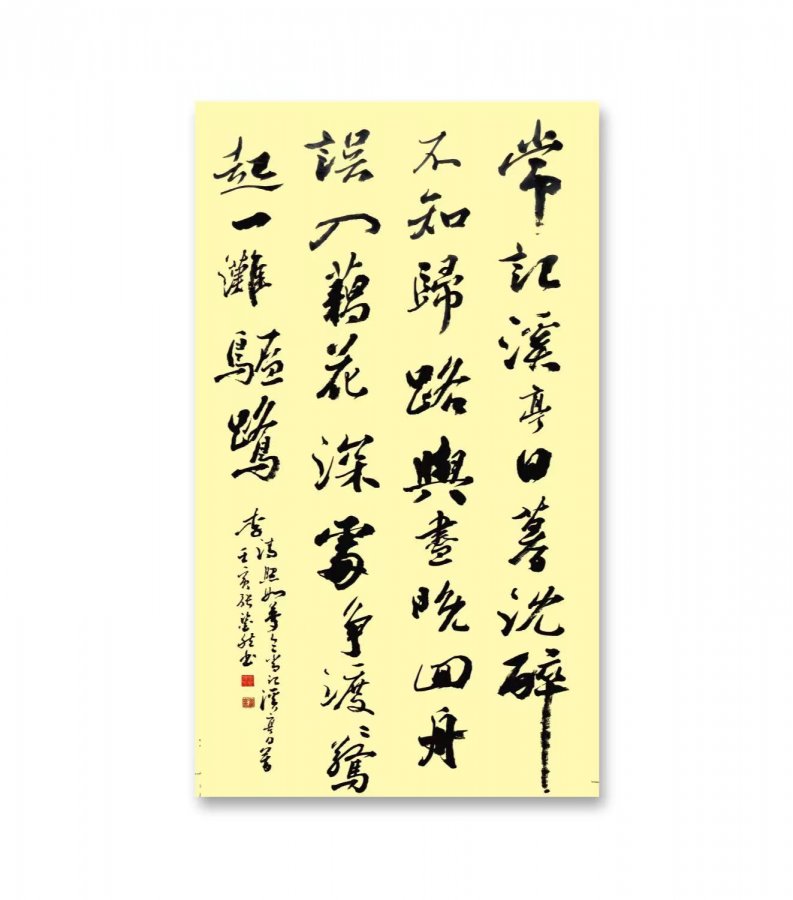 常記溪亭日暮沈醉
不知歸路興盡晚回舟
誤入藕花深處爭渡〻驚
起一灘驅鷺
李清照如夢令常記溪亭日暮
壬寅張書